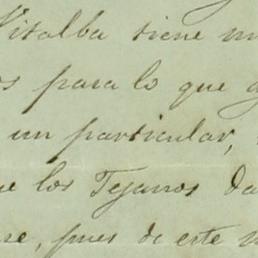 Vitalba tiene
para lo que
un particular,
los Tejanos
pues de este